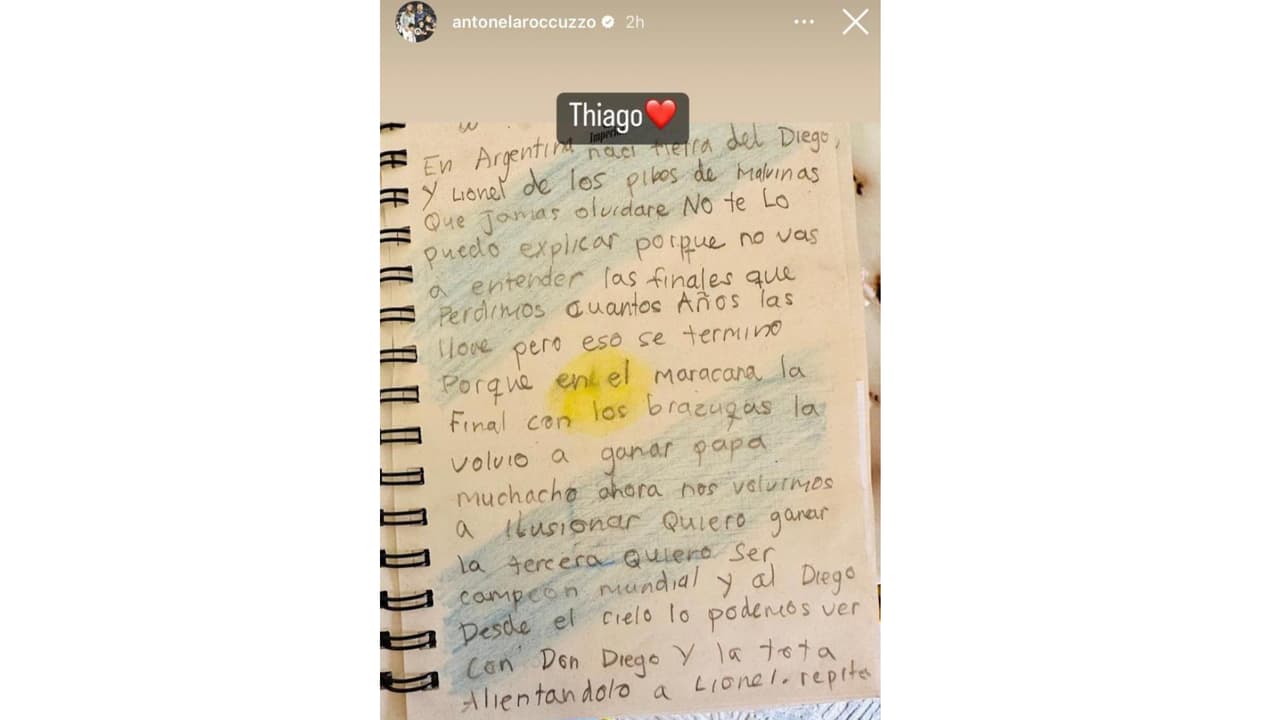 antonelaroccuzzo 2h
Thiago❤️
En Argentina naci tierra del Diego,
Y Lionel de los pibes de Malvinas
Que jamas olvidare No te Lo
puedo explicar porque no vas
a entender las finales que
Perdimos cuantos Años las
llore pero eso se termino
Porque en el maracana la
Final con los brazugas la
volvio a ganar papa
muchacho ahora nos volvimos
a Ilusionar Quiero ganar
la tercera Quiero Ser
campeon mundial y al Diego
Desde el cielo lo podemos ver
con Don Diego Y la tota
Alientandolo a Lionel. repite